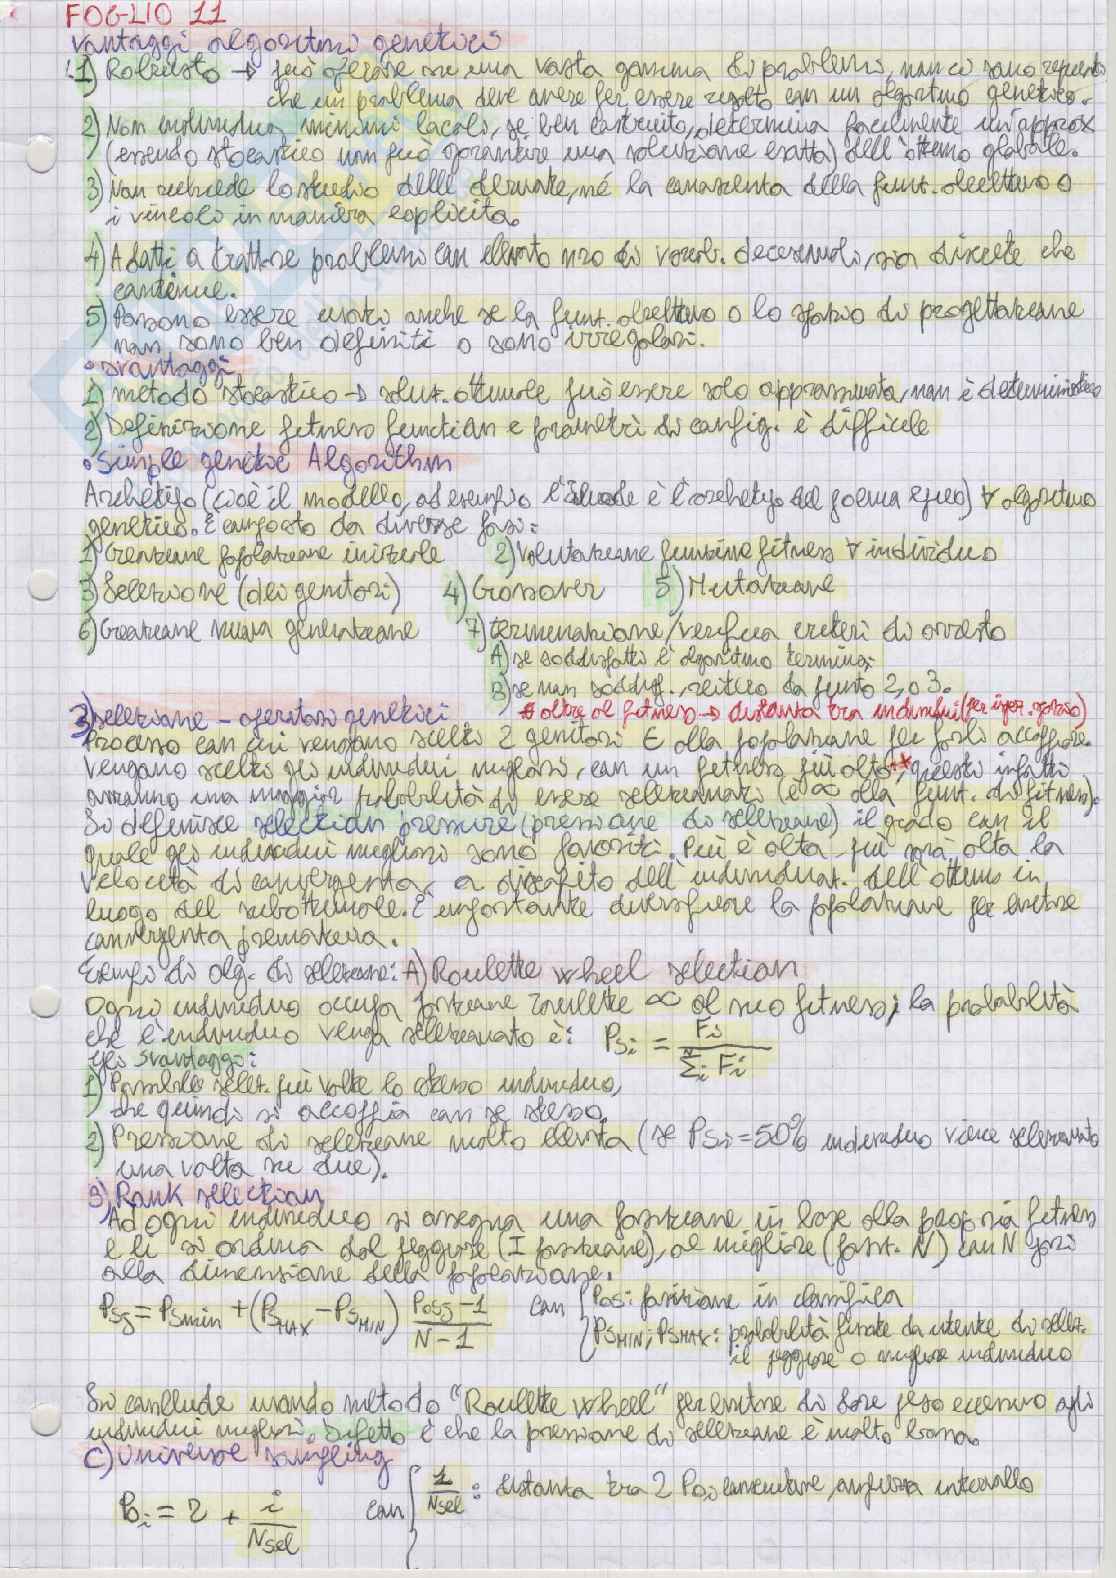 FOGLIO 11
Vantaggi algoritmi genetici
1) Robusto → può operare su una vasta gamma di problemi, non ci sono requisiti
che un problema deve avere per essere risolto con un algoritmo genetico.
2) Non individua minimi locali, se ben costruito, determina facilmente un'approx
(essendo stocastico non può garantire una soluzione esatta) dell'ottimo globale.
3) Non richiede lo studio delle derivate, né la conoscenza della funz. obiettivo o
i vincoli in maniera esplicita.
4) Adatti a trattare problemi con elevato nro di variab. decisionali, sia discrete che
continue.
5) Possono essere usati anche se la funz. obiettivo o lo spazio di progettazione
non sono ben definiti o sono irregolari.
• svantaggi
1) metodo stocastico → soluz. ottimale può essere solo approssimata, non è deterministico
2) Definizione fitness function e parametri di config. è difficile
• Simple genetic Algorithm
Archetipo (cioè il modello, ad esempio l'Iliade è l'archetipo del poema epico) ∀ algoritmo
genetico. È composto da diverse fasi:
1) Creazione popolazione iniziale 2) Valutazione funzione fitness ∀ individuo
3) Selezione (dei genitori) 4) Crossover 5) Mutazione
6) Creazione nuova generazione 7) terminazione/verifica criteri di arresto
A) se soddisfatti l'algoritmo termina;
B) se non soddisf., reitero da punto 2, o 3.
3) selezione - operatori genetici * oltre al fitness → distanza tra individui (per iper. spazio)
Processo con cui vengono scelti 2 genitori ∈ alla popolazione per farli accoppiare.
Vengono scelti gli individui migliori, con un fitness più alto*, questi infatti
avranno una maggior probabilità di essere selezionati (è ∝ alla funz. di fitness).
Si definisce selection pressure (pressione di selezione) il grado con il
quale gli individui migliori sono favoriti. Più è alta più sarà alta la
velocità di convergenza, a discapito dell'individuaz. dell'ottimo in
luogo del subottimale. È importante diversificare la popolazione per evitare
convergenza prematura.
Esempi di alg. di selezione: A) Roulette wheel selection
Ogni individuo occupa porzione roulette ∝ al suo fitness; la probabilità
che l'individuo venga selezionato è: Psi = Fi / Σi^N Fi
Gli svantaggi:
1) Possibile selez. più volte lo stesso individuo,
che quindi si accoppia con se stesso.
2) Pressione di selezione molto elevata (se Psi=50% individuo viene selezionato
una volta su due).
B) Rank selection
Ad ogni individuo si assegna una posizione in base alla propria fitness
e li si ordina dal peggiore (I posizione), al migliore (posiz. N) con N pari
alla dimensione della popolazione.
Psj = Psmin + (PsMAX - PsMIN) Posj-1 / N-1 con { Pos: posizione in classifica
PsMIN; PsMAX: probabilità fissate da utente di selez.
il peggiore o migliore individuo
Si conclude usando metodo "Roulette wheel" per evitare di dare peso eccessivo agli
individui migliori. Difetto è che la pressione di selezione è molto bassa.
C) Universe sampling
Psi = r + i / Nsel con { 1/Nsel: distanza tra 2 Pos consecutive, ampiezza intervallo